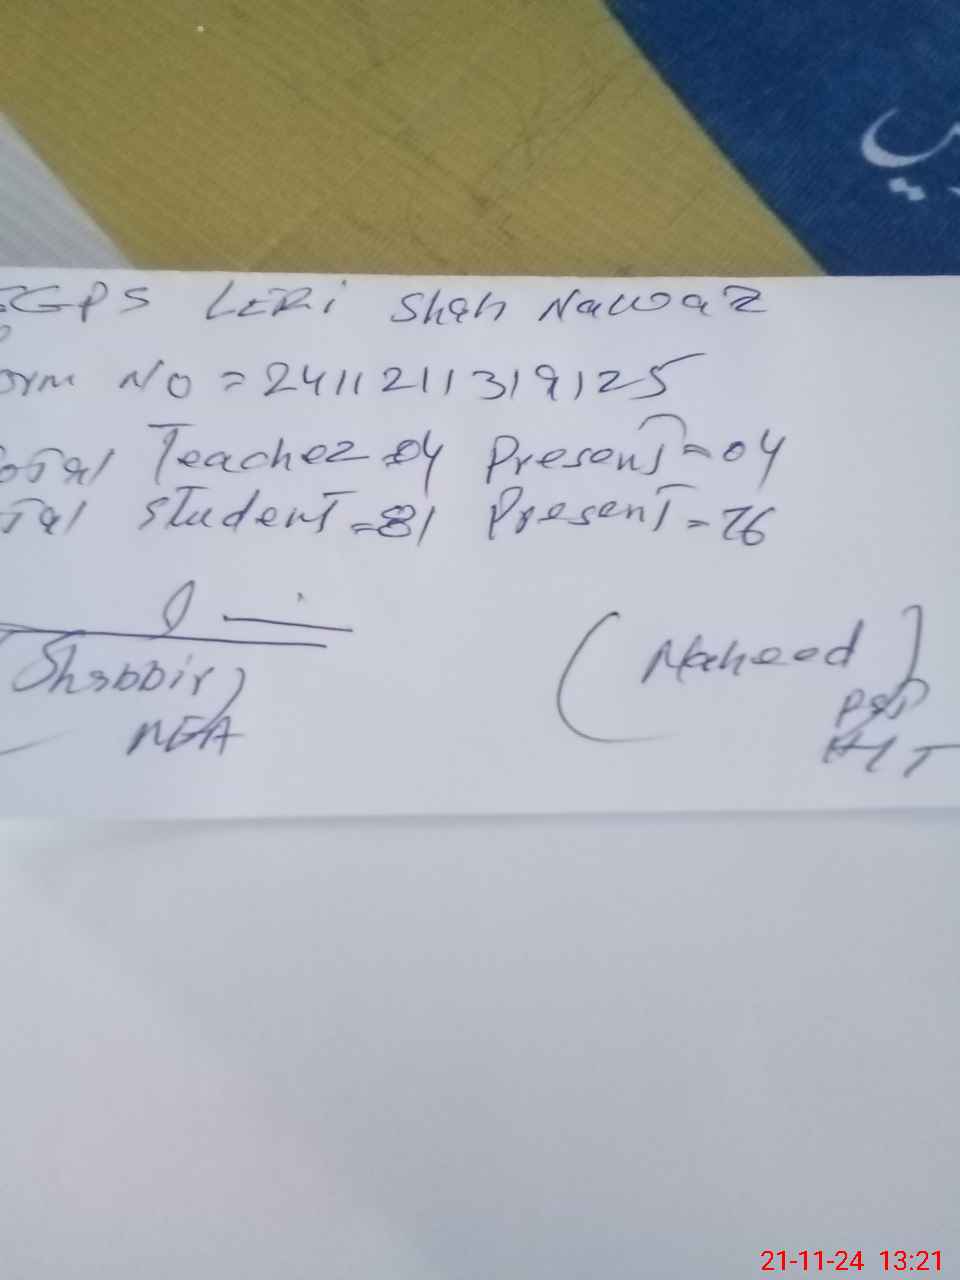 GPS LERi Shah Nawaz
orm No = 2411211319125
otal Teacher = 04 Present = 04
tal student = 81 Present = 76
(Shabbir)
MEA
(Naheed)
PST
HT
21-11-24 13:21